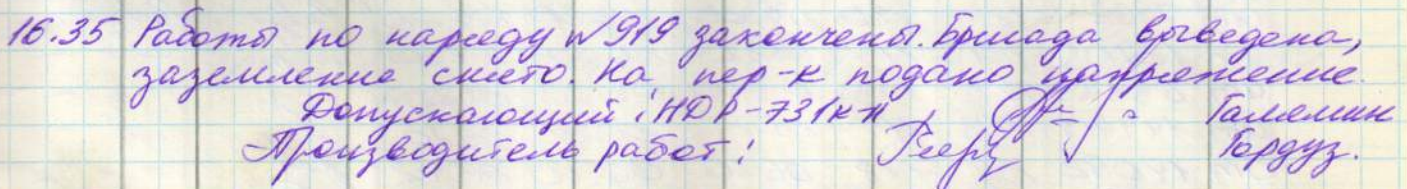 16.35 Работы по наряду №919 закончены. Бригада выведена,
заземление снято. На пер-к подано напряжение.
Допускающий: НДР-731к-н Галямин
Производитель работ: Гордуз.